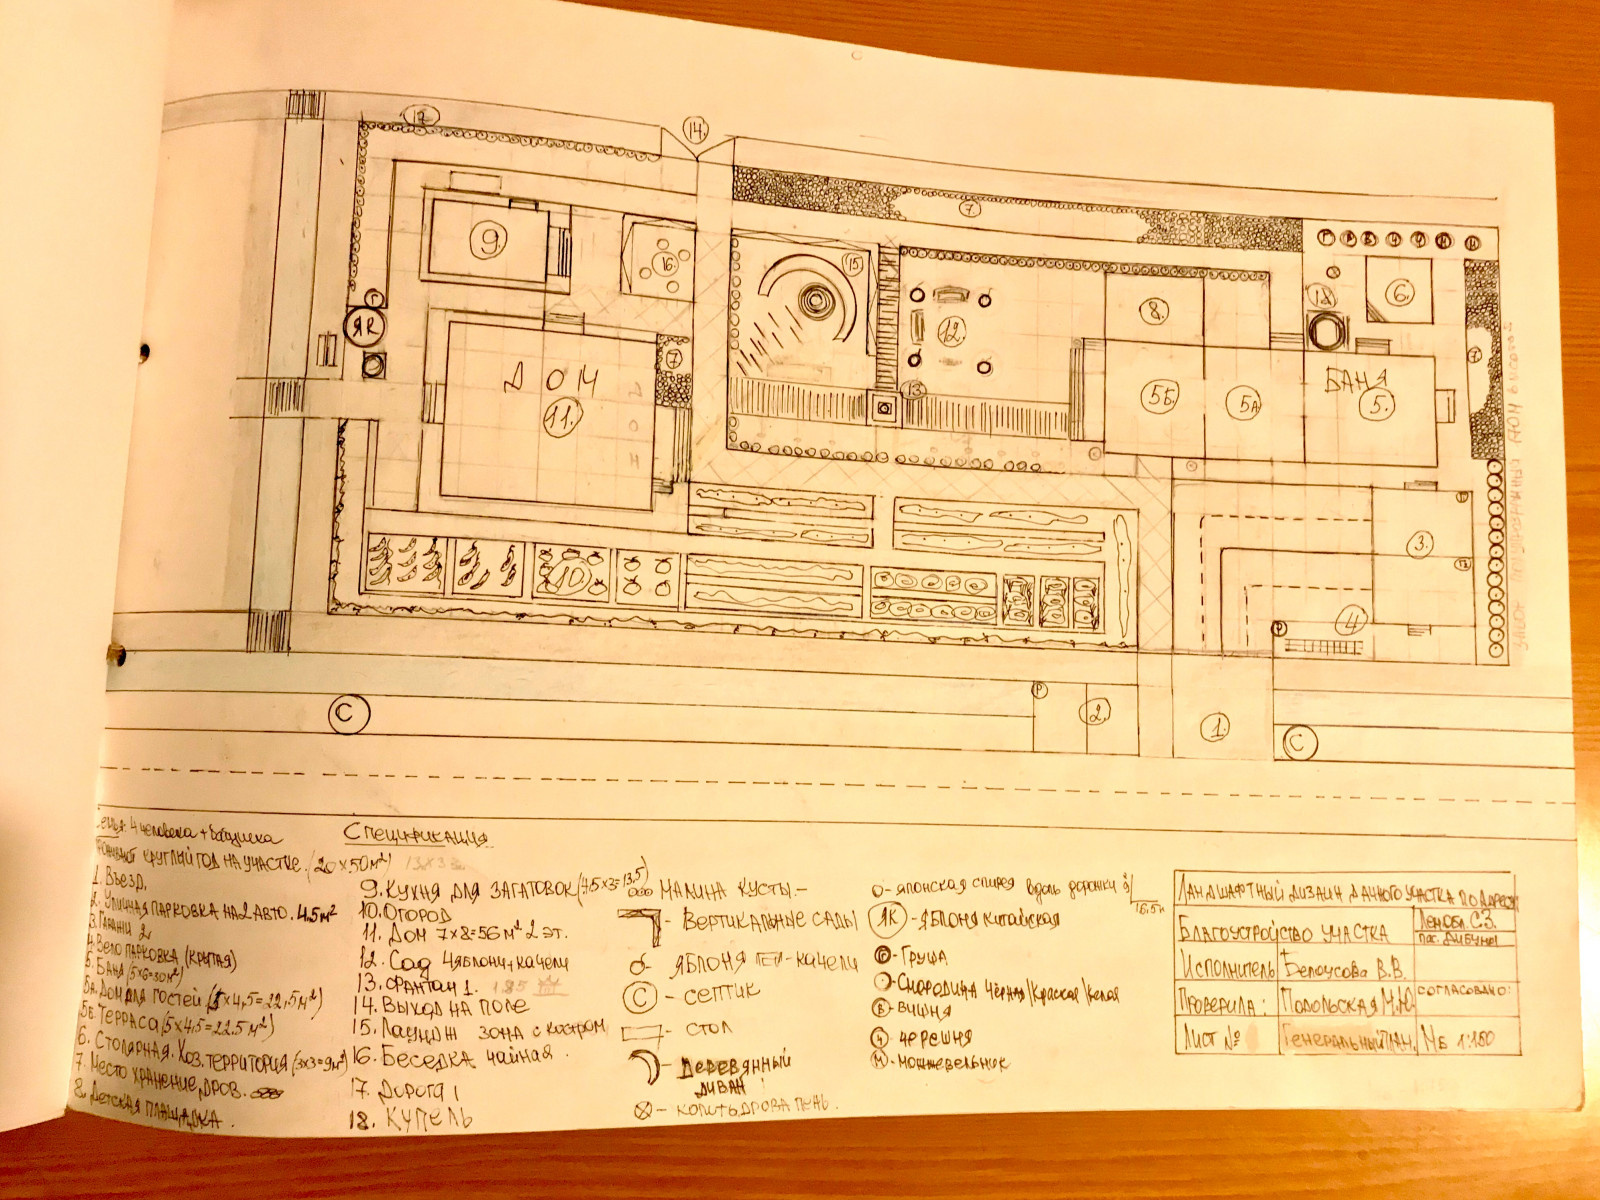 12
14.
7.
Г В В Ч Ч М М
9
16
15
18
6.
Г
ЯК
12
8.
7
7
ДОМ
11.
ДОМ
13
5Б
5А
БАНЯ
5.
С
3.
10
4
Р
Р
2.
1.
С
С
4 человека + бабушка
круглый год на участке. (20×50м²)
Спецификация
1. Въезд.
2. Уличная парковка на 2 авто. 4.5м²
3. Гаражи 2
4. Вело парковка (крытая)
5. Баня (5×6=30м²)
5А. Дом для гостей (5×4,5=22,5м²)
5Б. Терраса (5×4,5=22.5м²)
6. Столярная. Хоз. территория (3×3=9м²)
7. Место хранение дров.
8. Детская площадка.
9. Кухня для загатовок (4.5×3=13,5)
10. Огород
11. Дом 7×8=56м² 2 эт.
12. Сад 4 яблони + качели
13. Фантан 1.
14. Выход на поле
15. Лаундж зона с костром
16. Беседка чайная.
17. Дорога
18. Купель
Малина кусты. -
- Вертикальные сады
- яблоня - качели
С - септик
- стол
- Деревянный
диван
- колить дрова пень.
- японская спирея вдоль дорожки
16.5м
ЯК - яблоня китайская
Г - Груша
- Смородина чёрная/красная/белая
В - вишня
Ч - черешня
М - можжевельник
Ландшафтный дизайн дачного участка по адресу
Благоустройство участка
Ленобл. С.З.
пос. Дибуны
Исполнитель
Белоусова В.В.
Проверила:
Подольская М.Ю.
согласовано:
Лист №
Генеральный план.
МБ 1:150